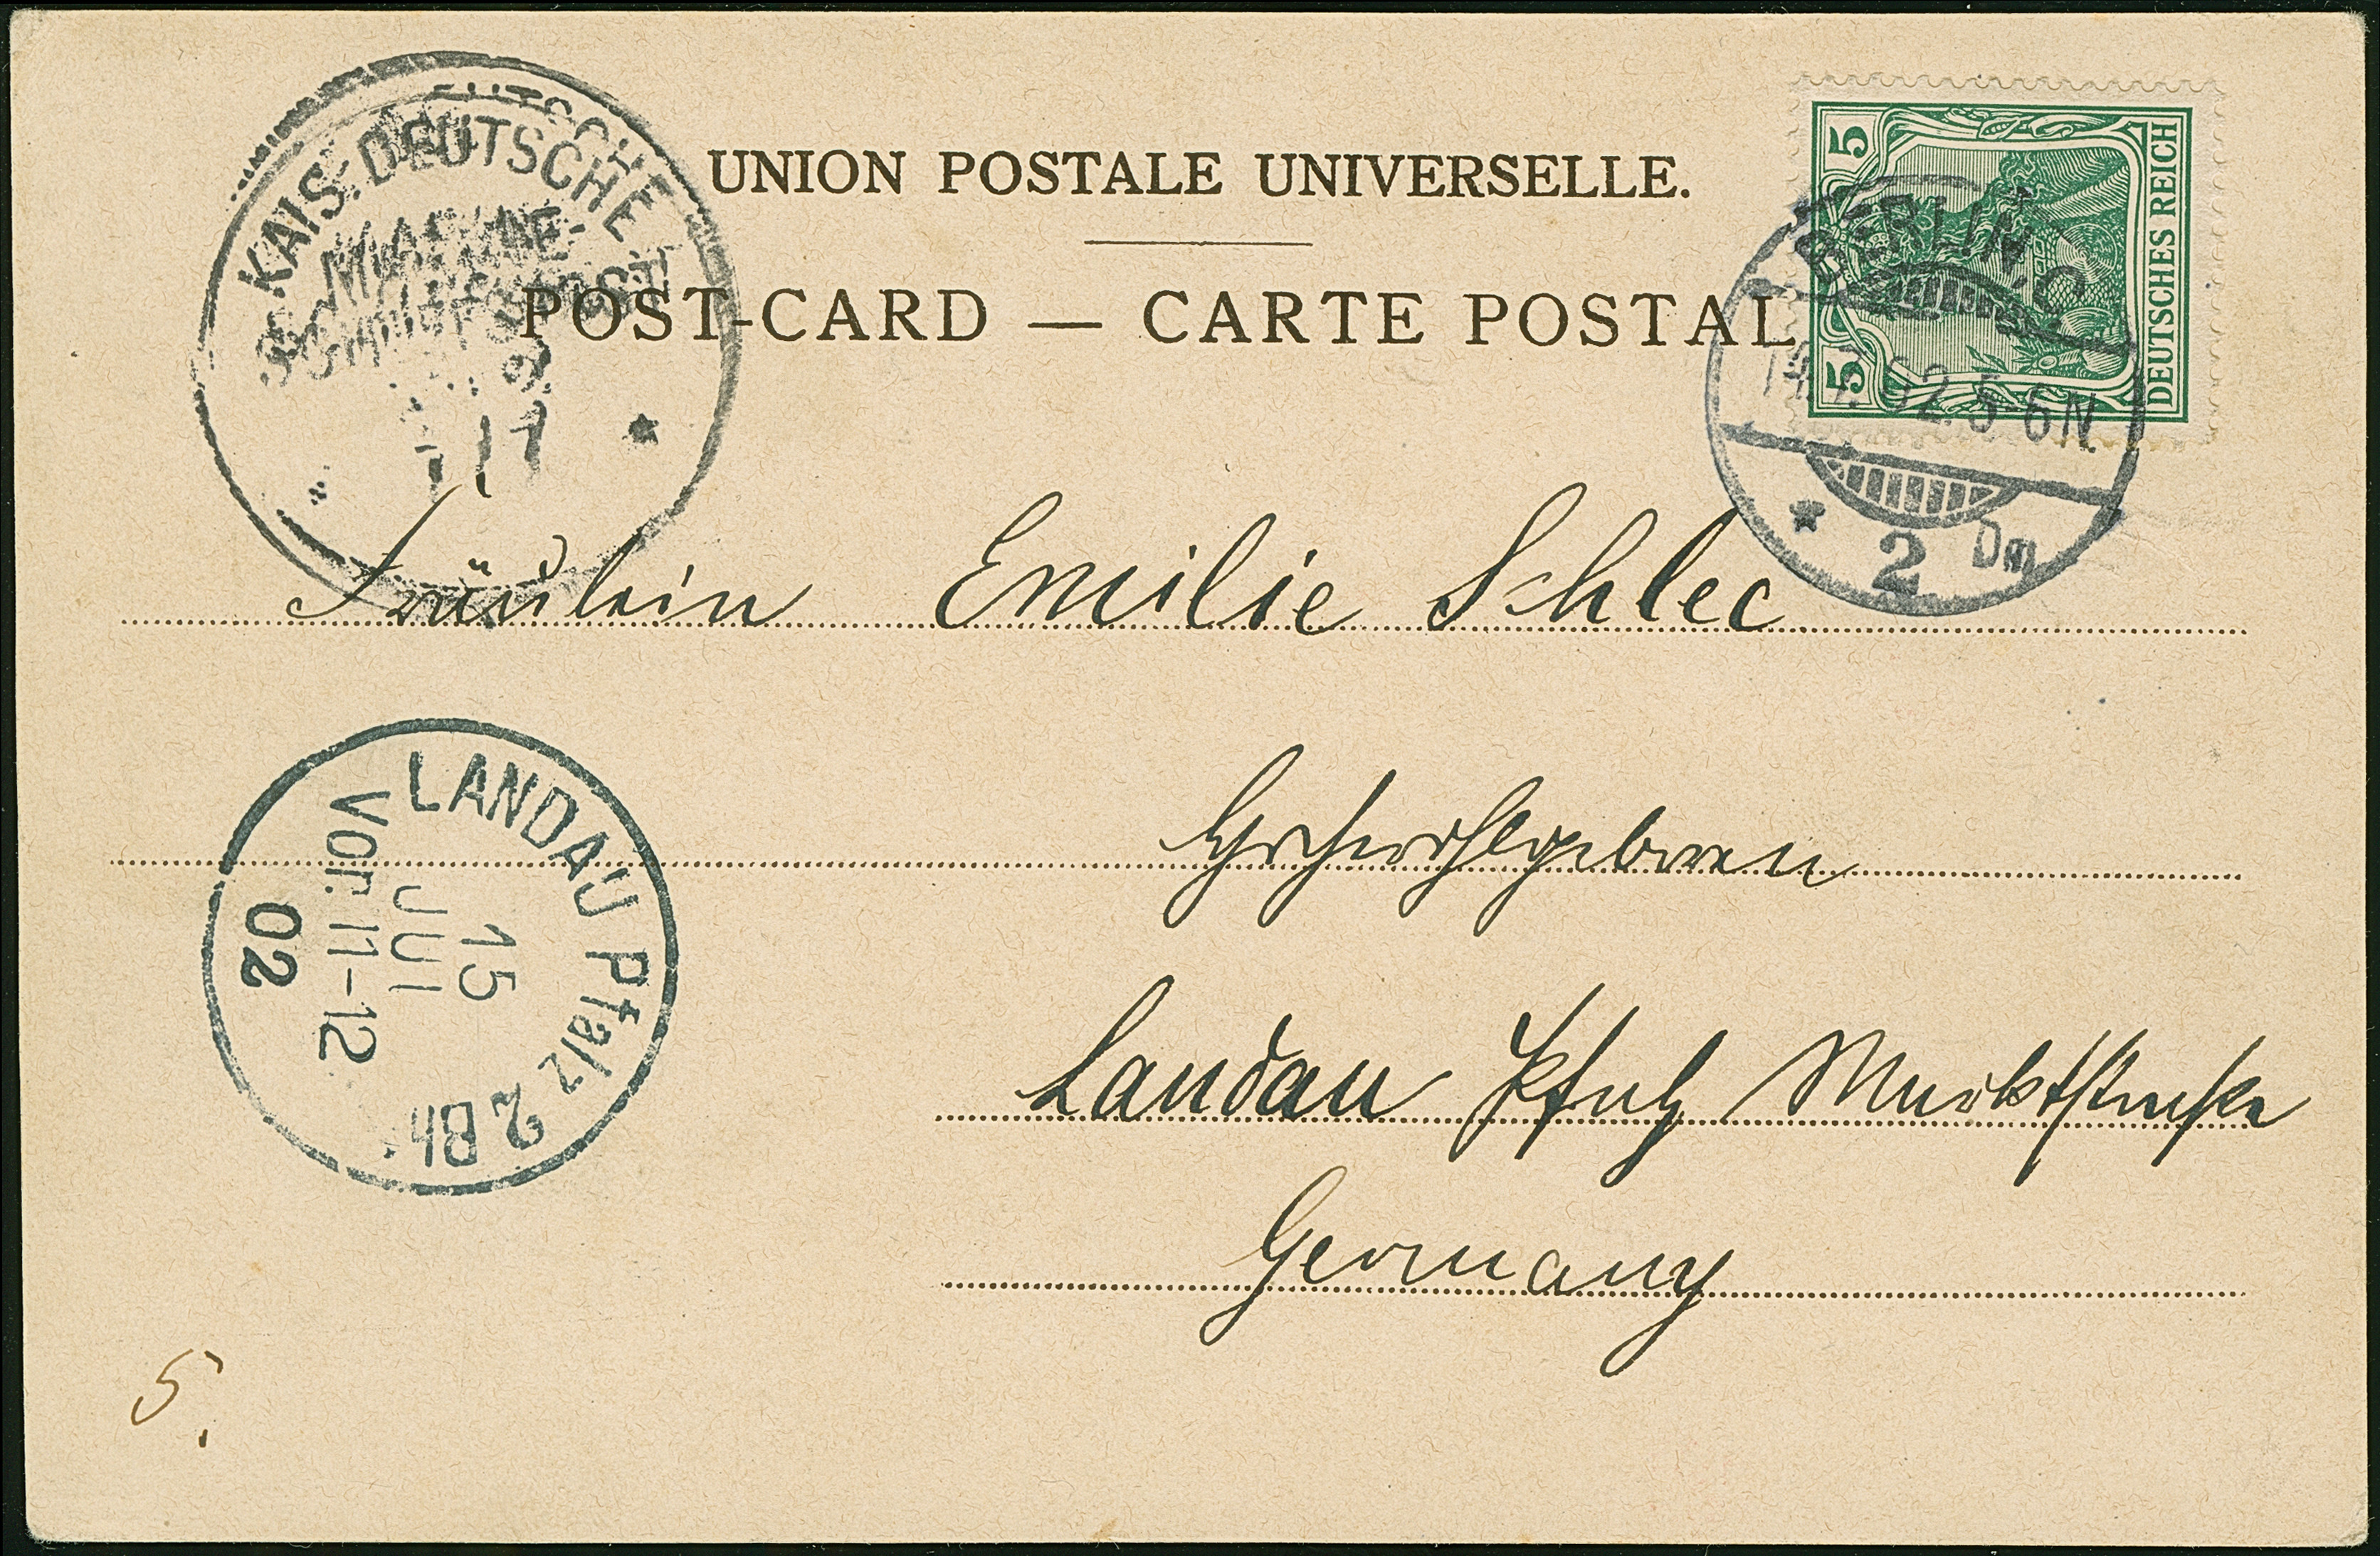 UNION POSTALE UNIVERSELLE.
POST-CARD — CARTE POSTAL
KAIS. DEUTSCHE
MARINE-
SCHIFFSPOST
5 5
DEUTSCHES REICH
BERLIN, C
14.7.02.5-6N.
* 2 Dm
Fräulein Emilie Schlec
Hochwohlgeboren
Landau Pfalz Marktstraße
Germany
LANDAU Pfalz 2.Bh.
15
JUL
Vor. 11-12
02
5.